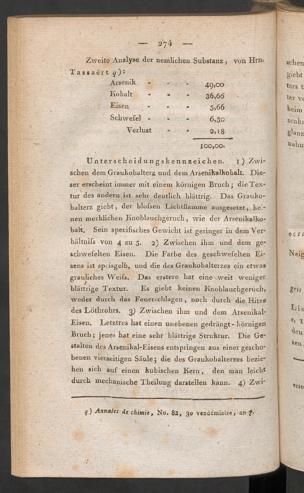 — 274 —
Zweite Analyse der nemlichen Substanz, von Hrn.
Tassaert q):
Arsenik - - - 49,00
Kobalt - - - 36,66
Eisen - - - 5,66
Schwefel - - - 6,50
Verlust - - 2,18
100,00.
Unterscheidungskennzeichen. 1) Zwi-
schen dem Graukobalterz und dem Arsenikalkobalt. Die-
ser erscheint immer mit einem körnigen Bruch; die Tex-
tur des andern ist sehr deutlich blättrig. Das Grauko-
balterz giebt, der blossen Lichtflamme ausgesetzt, kei-
nen merklichen Knoblauchgeruch, wie der Arsenikalko-
balt. Sein specifisches Gewicht ist geringer in dem Ver-
hältnis von 4 zu 5. 2) Zwischen ihm und dem ge-
schwefelten Eisen. Die Farbe des geschwefelten Ei-
sens ist speisgelb, und die des Graukobalterzes ein etwas
grauliches Weiss. Das erstere hat eine weit weniger
blättrige Textur. Es giebt keinen Knoblauchgeruch,
weder durch das Feuerschlagen, noch durch die Hitze
des Löthrohrs. 3) Zwischen ihm und dem Arsenikal-
Eisen. Letztres hat einen unebenen gedrängt-körnigen
Bruch; jenes hat eine sehr blättrige Struktur. Die Ge-
stalten des Arsenikal-Eisens entspringen aus einer gescho-
benen vierseitigen Säule; die des Graukobalterzes bezie-
hen sich auf einen kubischen Kern, den man leicht
durch mechanische Theilung darstellen kann. 4) Zwi-
q) Annales de chimie, No. 82, 30 vendémiaire, an 7.